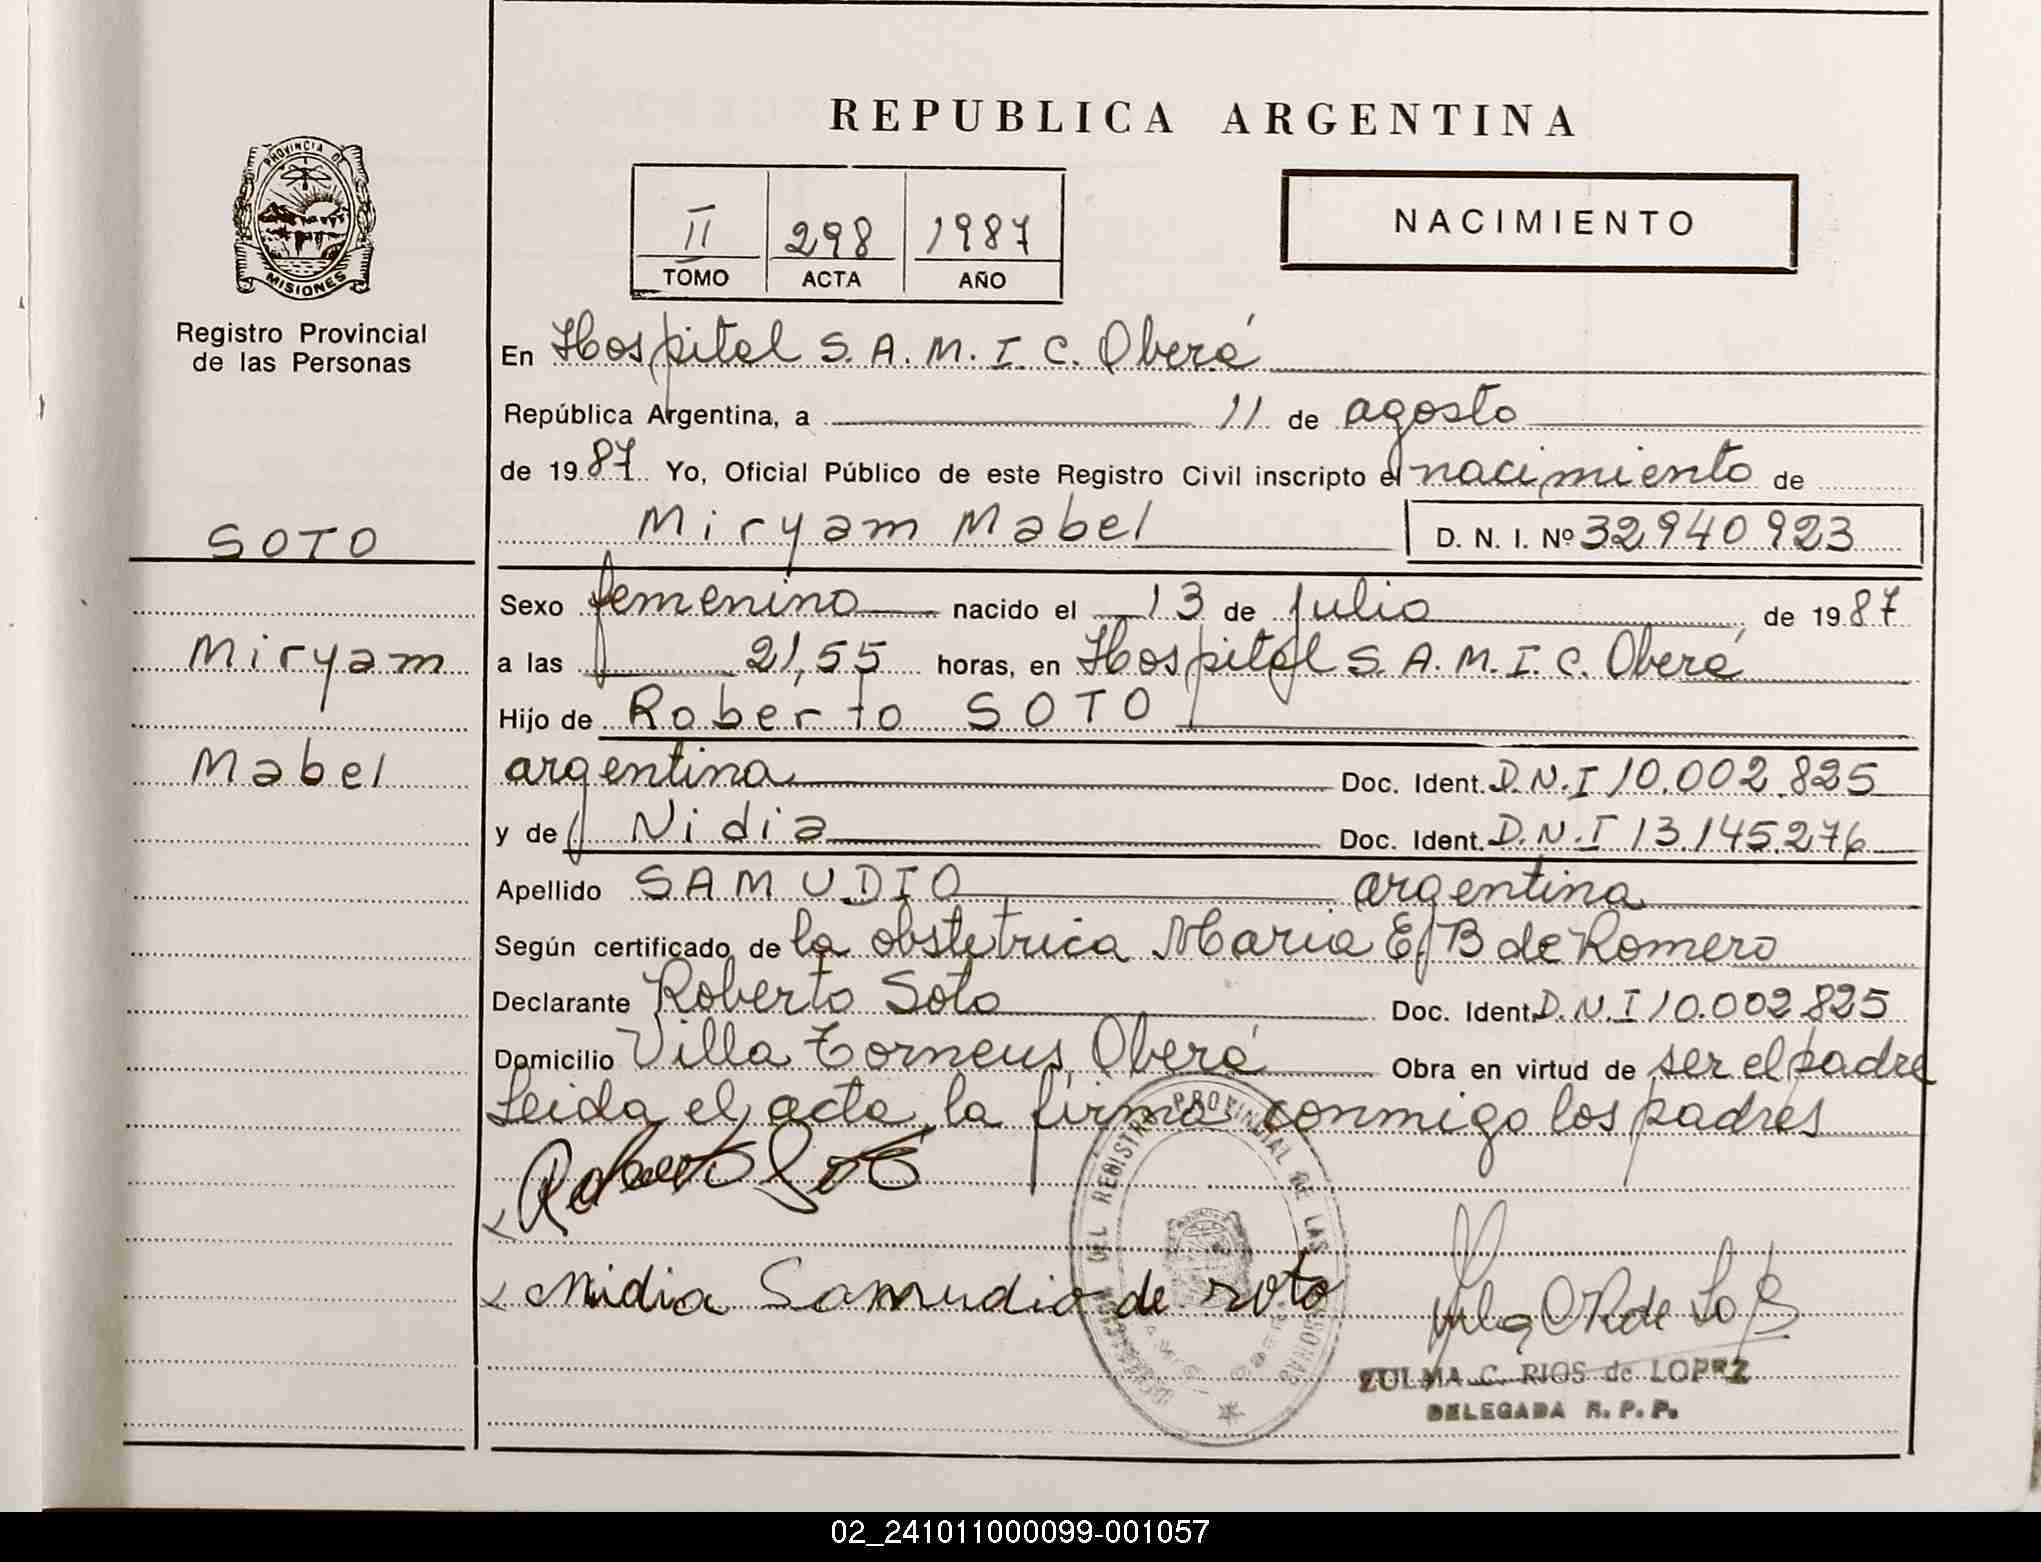 REPUBLICA ARGENTINA
PROVINCIA DE
MISIONES
Registro Provincial
de las Personas
II 298 1987
TOMO ACTA AÑO
NACIMIENTO
En Hospital S.A.M.I.C. Oberá
República Argentina, a 11 de agosto
de 1987 Yo, Oficial Público de este Registro Civil inscripto el nacimiento de
Miryam Mabel D. N. I. Nº 32940923
SOTO
Miryam
Mabel
Sexo femenino nacido el 13 de julio de 1987
a las 21,55 horas, en Hospital S.A.M.I.C. Oberá
Hijo de Roberto SOTO
argentina Doc. Ident. D.N.I 10.002.825
y de Nidia Doc. Ident. D.N.I 13.145.276
Apellido SAMUDIO argentina
Según certificado de la obstetrica Maria E. B de Romero
Declarante Roberto Soto Doc. Ident. D.N.I 10.002.825
Domicilio Villa Torneus, Oberá Obra en virtud de ser el padre
Leida el acta, la firma conmigo los padres
Roberto Soto
Nidia Samudio de Soto
DEL REGISTRO PROVINCIAL DE LAS PERSONAS
ZULMA C. RIOS de LOPEZ
DELEGADA R. P. P.
02_241011000099-001057